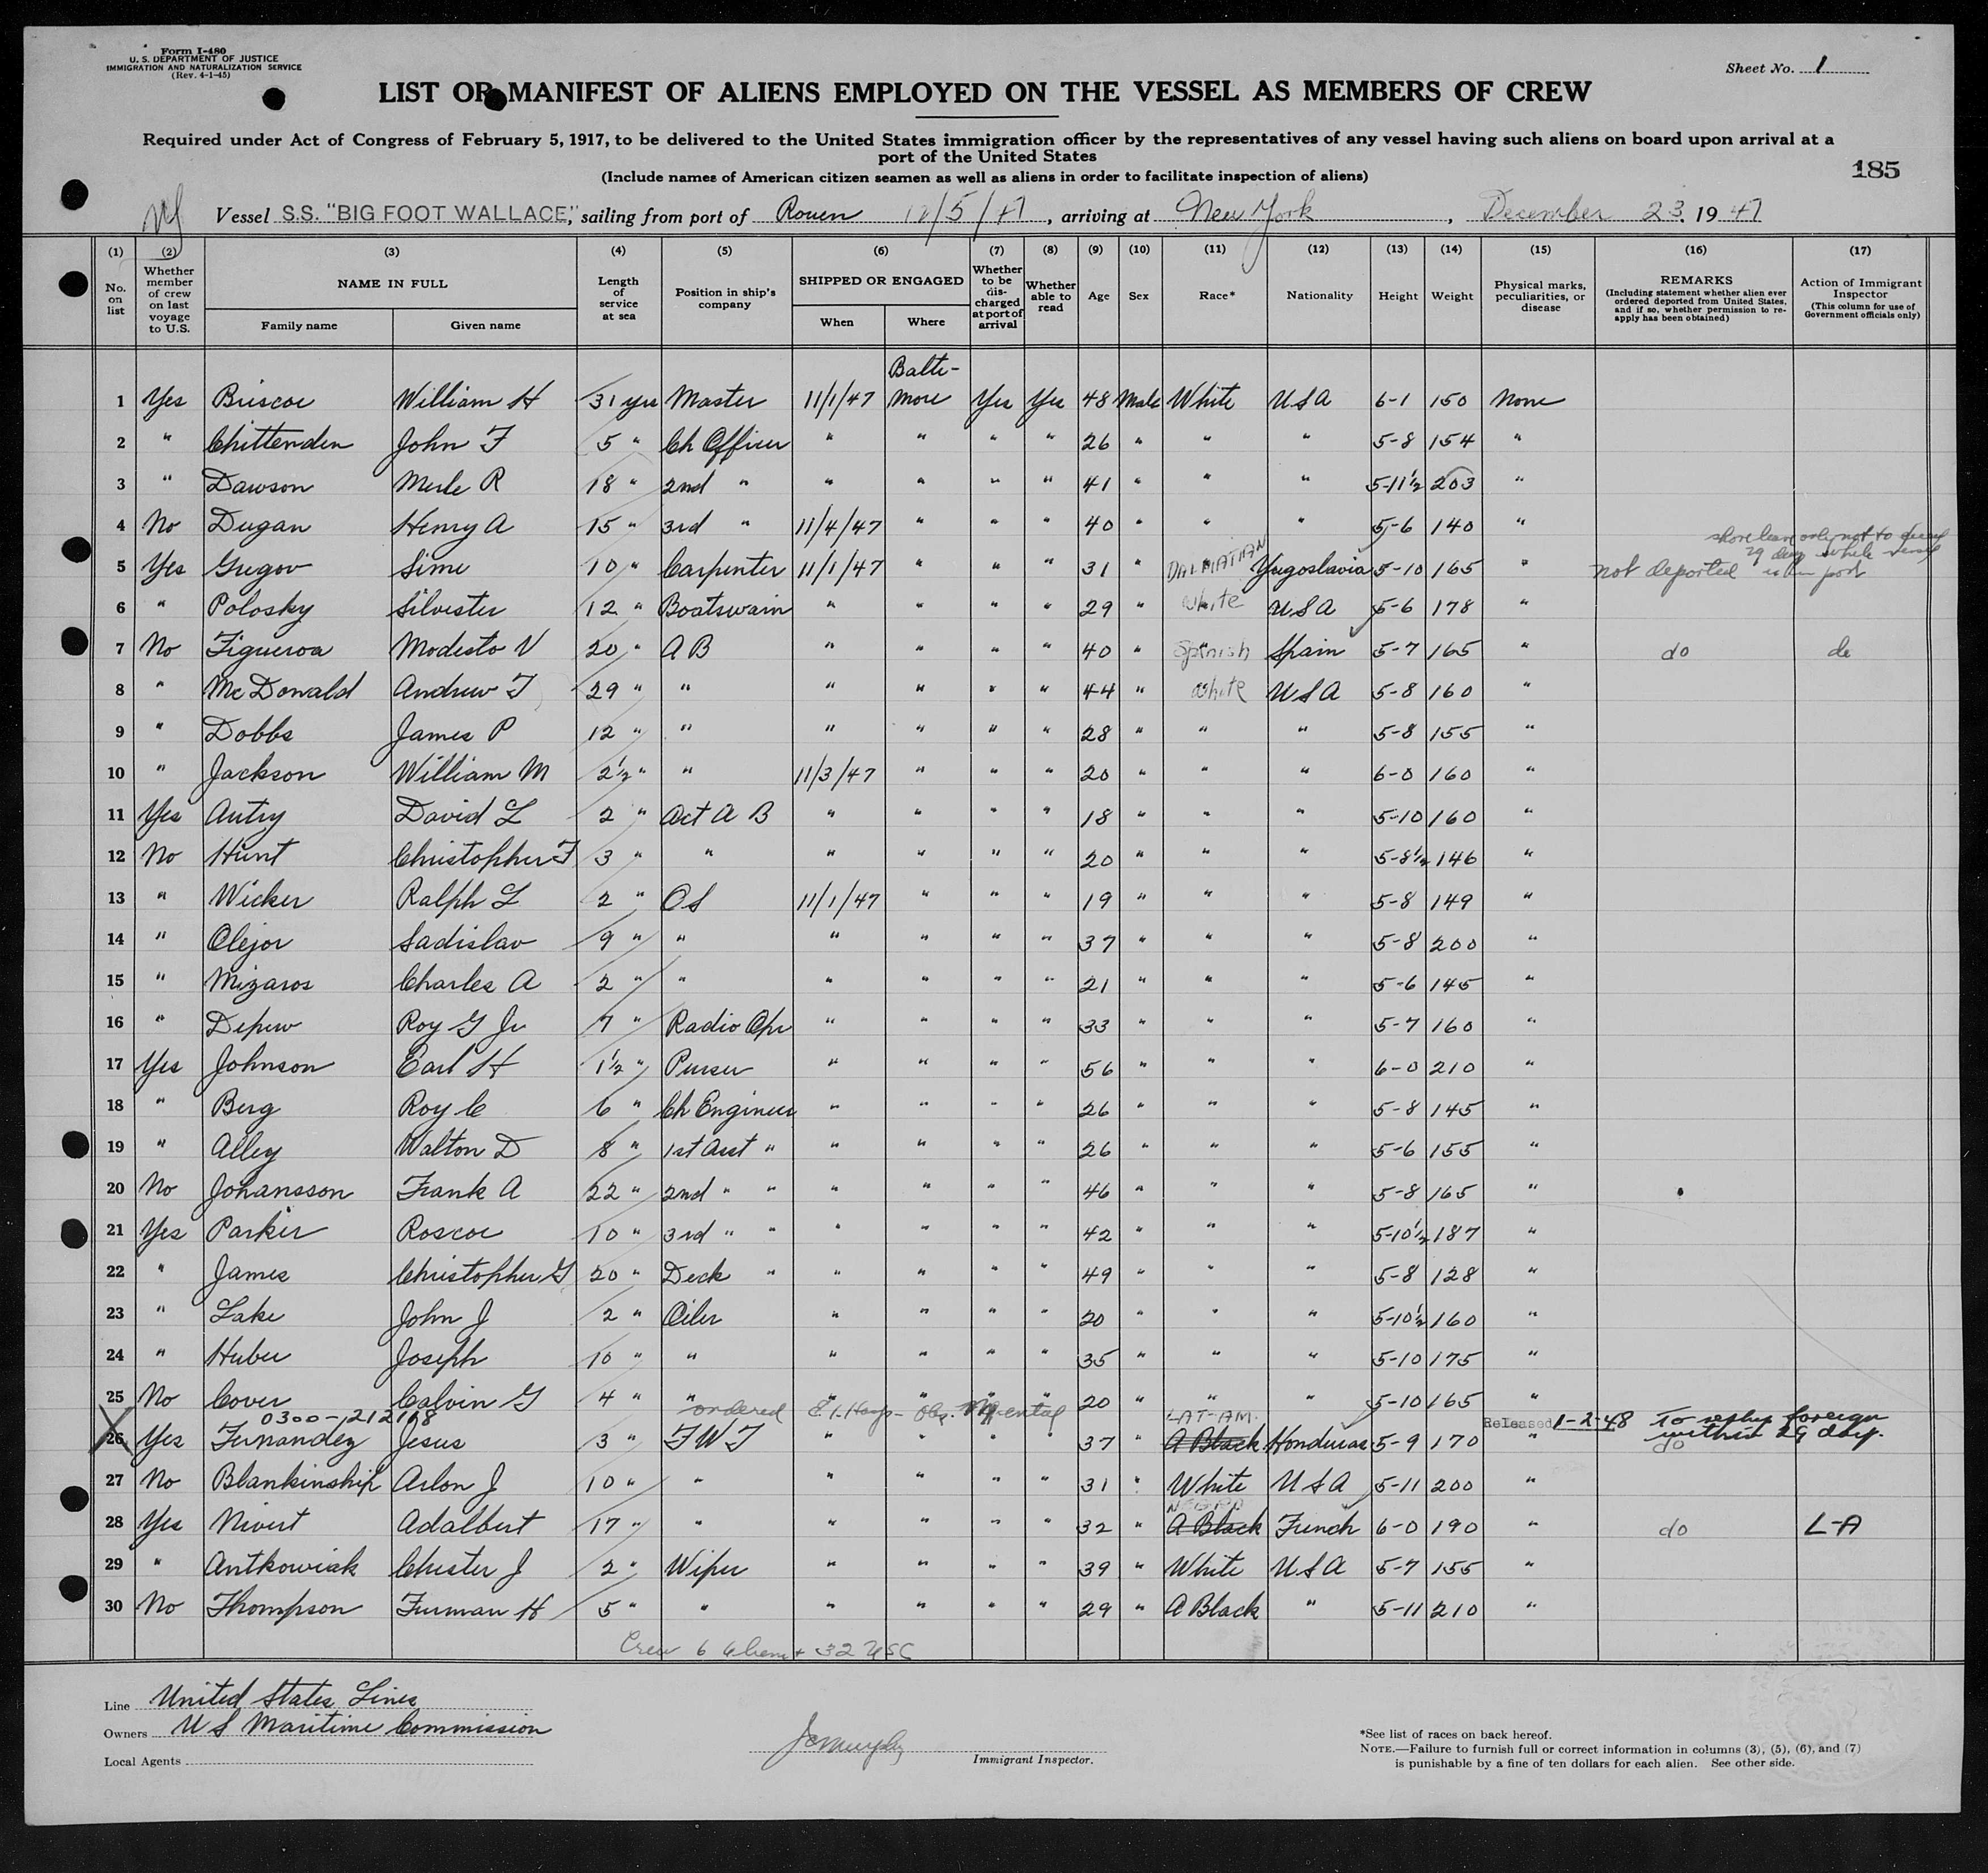 Form I-480
U. S. DEPARTMENT OF JUSTICE
IMMIGRATION AND NATURALIZATION SERVICE
(Rev. 4-1-45)
Sheet No. 1
LIST OR MANIFEST OF ALIENS EMPLOYED ON THE VESSEL AS MEMBERS OF CREW
Required under Act of Congress of February 5, 1917, to be delivered to the United States immigration officer by the representatives of any vessel having such aliens on board upon arrival at a
port of the United States
(Include names of American citizen seamen as well as aliens in order to facilitate inspection of aliens)
185
Vessel S.S. "BIG FOOT WALLACE", sailing from port of Rouen 12/5/47, arriving at New York, December 23, 1947
(1) (2) (3) (4) (5) (6) (7) (8) (9) (10) (11) (12) (13) (14) (15) (16) (17)
No. on list
Whether member of crew on last voyage to U.S.
NAME IN FULL
Family name
Given name
Length of service at sea
Position in ship's company
SHIPPED OR ENGAGED
When
Where
Whether to be discharged at port of arrival
Whether able to read
Age
Sex
Race*
Nationality
Height
Weight
Physical marks, peculiarities, or disease
REMARKS
(Including statement whether alien ever ordered deported from United States, and if so, whether permission to re-apply has been obtained)
Action of Immigrant Inspector
(This column for use of Government officials only)
1 Yes Briscoe William H 31 yrs Master 11/1/47 Balti-more Yes Yes 48 Male White USA 6-1 150 None
2 " Chittenden John F 5 " Ch Officer " " " " 26 " " " 5-8 154 "
3 " Dawson Merle R 18 " 2nd " " " " " 41 " " " 5-11½ 203 "
4 No Dugan Henry A 15 " 3rd " 11/4/47 " " " 40 " " " 5-6 140 "
shore leave only not to exceed
29 days while vessel
is in port
5 Yes Gregov Sime 10 " Carpenter 11/1/47 " " " 31 " DALMATIAN Yugoslavia 5-10 165 " not deported
6 " Polosky Silvester 12 " Boatswain " " " " 29 " White USA 5-6 178 "
7 No Figueroa Modesto V 20 " A B " " " " 40 " Spanish Spain 5-7 165 " do do
8 " McDonald Andrew T 29 " " " " " " 44 " White USA 5-8 160 "
9 " Dobbs James P 12 " " " " " " 28 " " " 5-8 155 "
10 " Jackson William M 2½ " " 11/3/47 " " " 20 " " " 6-0 160 "
11 Yes Autry David L 2 " Act A B " " " " 18 " " " 5-10 160 "
12 No Hunt Christopher F 3 " " " " " " 20 " " " 5-8½ 146 "
13 " Wicker Ralph L 2 " OS 11/1/47 " " " 19 " " " 5-8 149 "
14 " Olejor Ladislav 9 " " " " " " 37 " " " 5-8 200 "
15 " Mizaros Charles A 2 " " " " " " 21 " " " 5-6 145 "
16 " Depew Roy G Jr 7 " Radio Opr " " " " 33 " " " 5-7 160 "
17 Yes Johnson Earl H 1½ " Purser " " " " 56 " " " 6-0 210 "
18 " Berg Roy C 6 " Ch Engineer " " " " 26 " " " 5-8 145 "
19 " Alley Walton D 8 " 1st Asst " " " " " 26 " " " 5-6 155 "
20 No Johansson Frank A 22 " 2nd " " " " " " 46 " " " 5-8 165 "
21 Yes Parker Roscoe 10 " 3rd " " " " " " 42 " " " 5-10½ 187 "
22 " James Christopher G 20 " Deck " " " " " 49 " " " 5-8 128 "
23 " Lake John J 2 " Oiler " " " " 20 " " " 5-10½ 160 "
24 " Huber Joseph 10 " " " " " " 35 " " " 5-10 175 "
25 No Cover Calvin G 4 " " " " " " 20 " " " 5-10 165 "
0300-212168 ordered LAT-AM. Released 1-2-48 To reship foreign
within 29 days.
26 Yes Fernandez Jesus 3 " FWT " " " " 37 " A Black Honduras 5-9 170 " do
27 No Blankinship Arlon J 10 " " " " " " 31 " White USA 5-11 200 "
NEGRO
28 Yes Nivert Adalbert 17 " " " " " " 32 " A Black French 6-0 190 " do L-A
29 " Antkowiak Chester J 2 " Wiper " " " " 39 " White USA 5-7 155 "
30 No Thompson Furman H 5 " " " " " " 29 " A Black " 5-11 210 "
Crew 6 Aliens + 32 USC
Line United States Lines
Owners U S Maritime Commission
Local Agents
JCMurphy
Immigrant Inspector.
*See list of races on back hereof.
NOTE.—Failure to furnish full or correct information in columns (3), (5), (6), and (7)
is punishable by a fine of ten dollars for each alien. See other side.